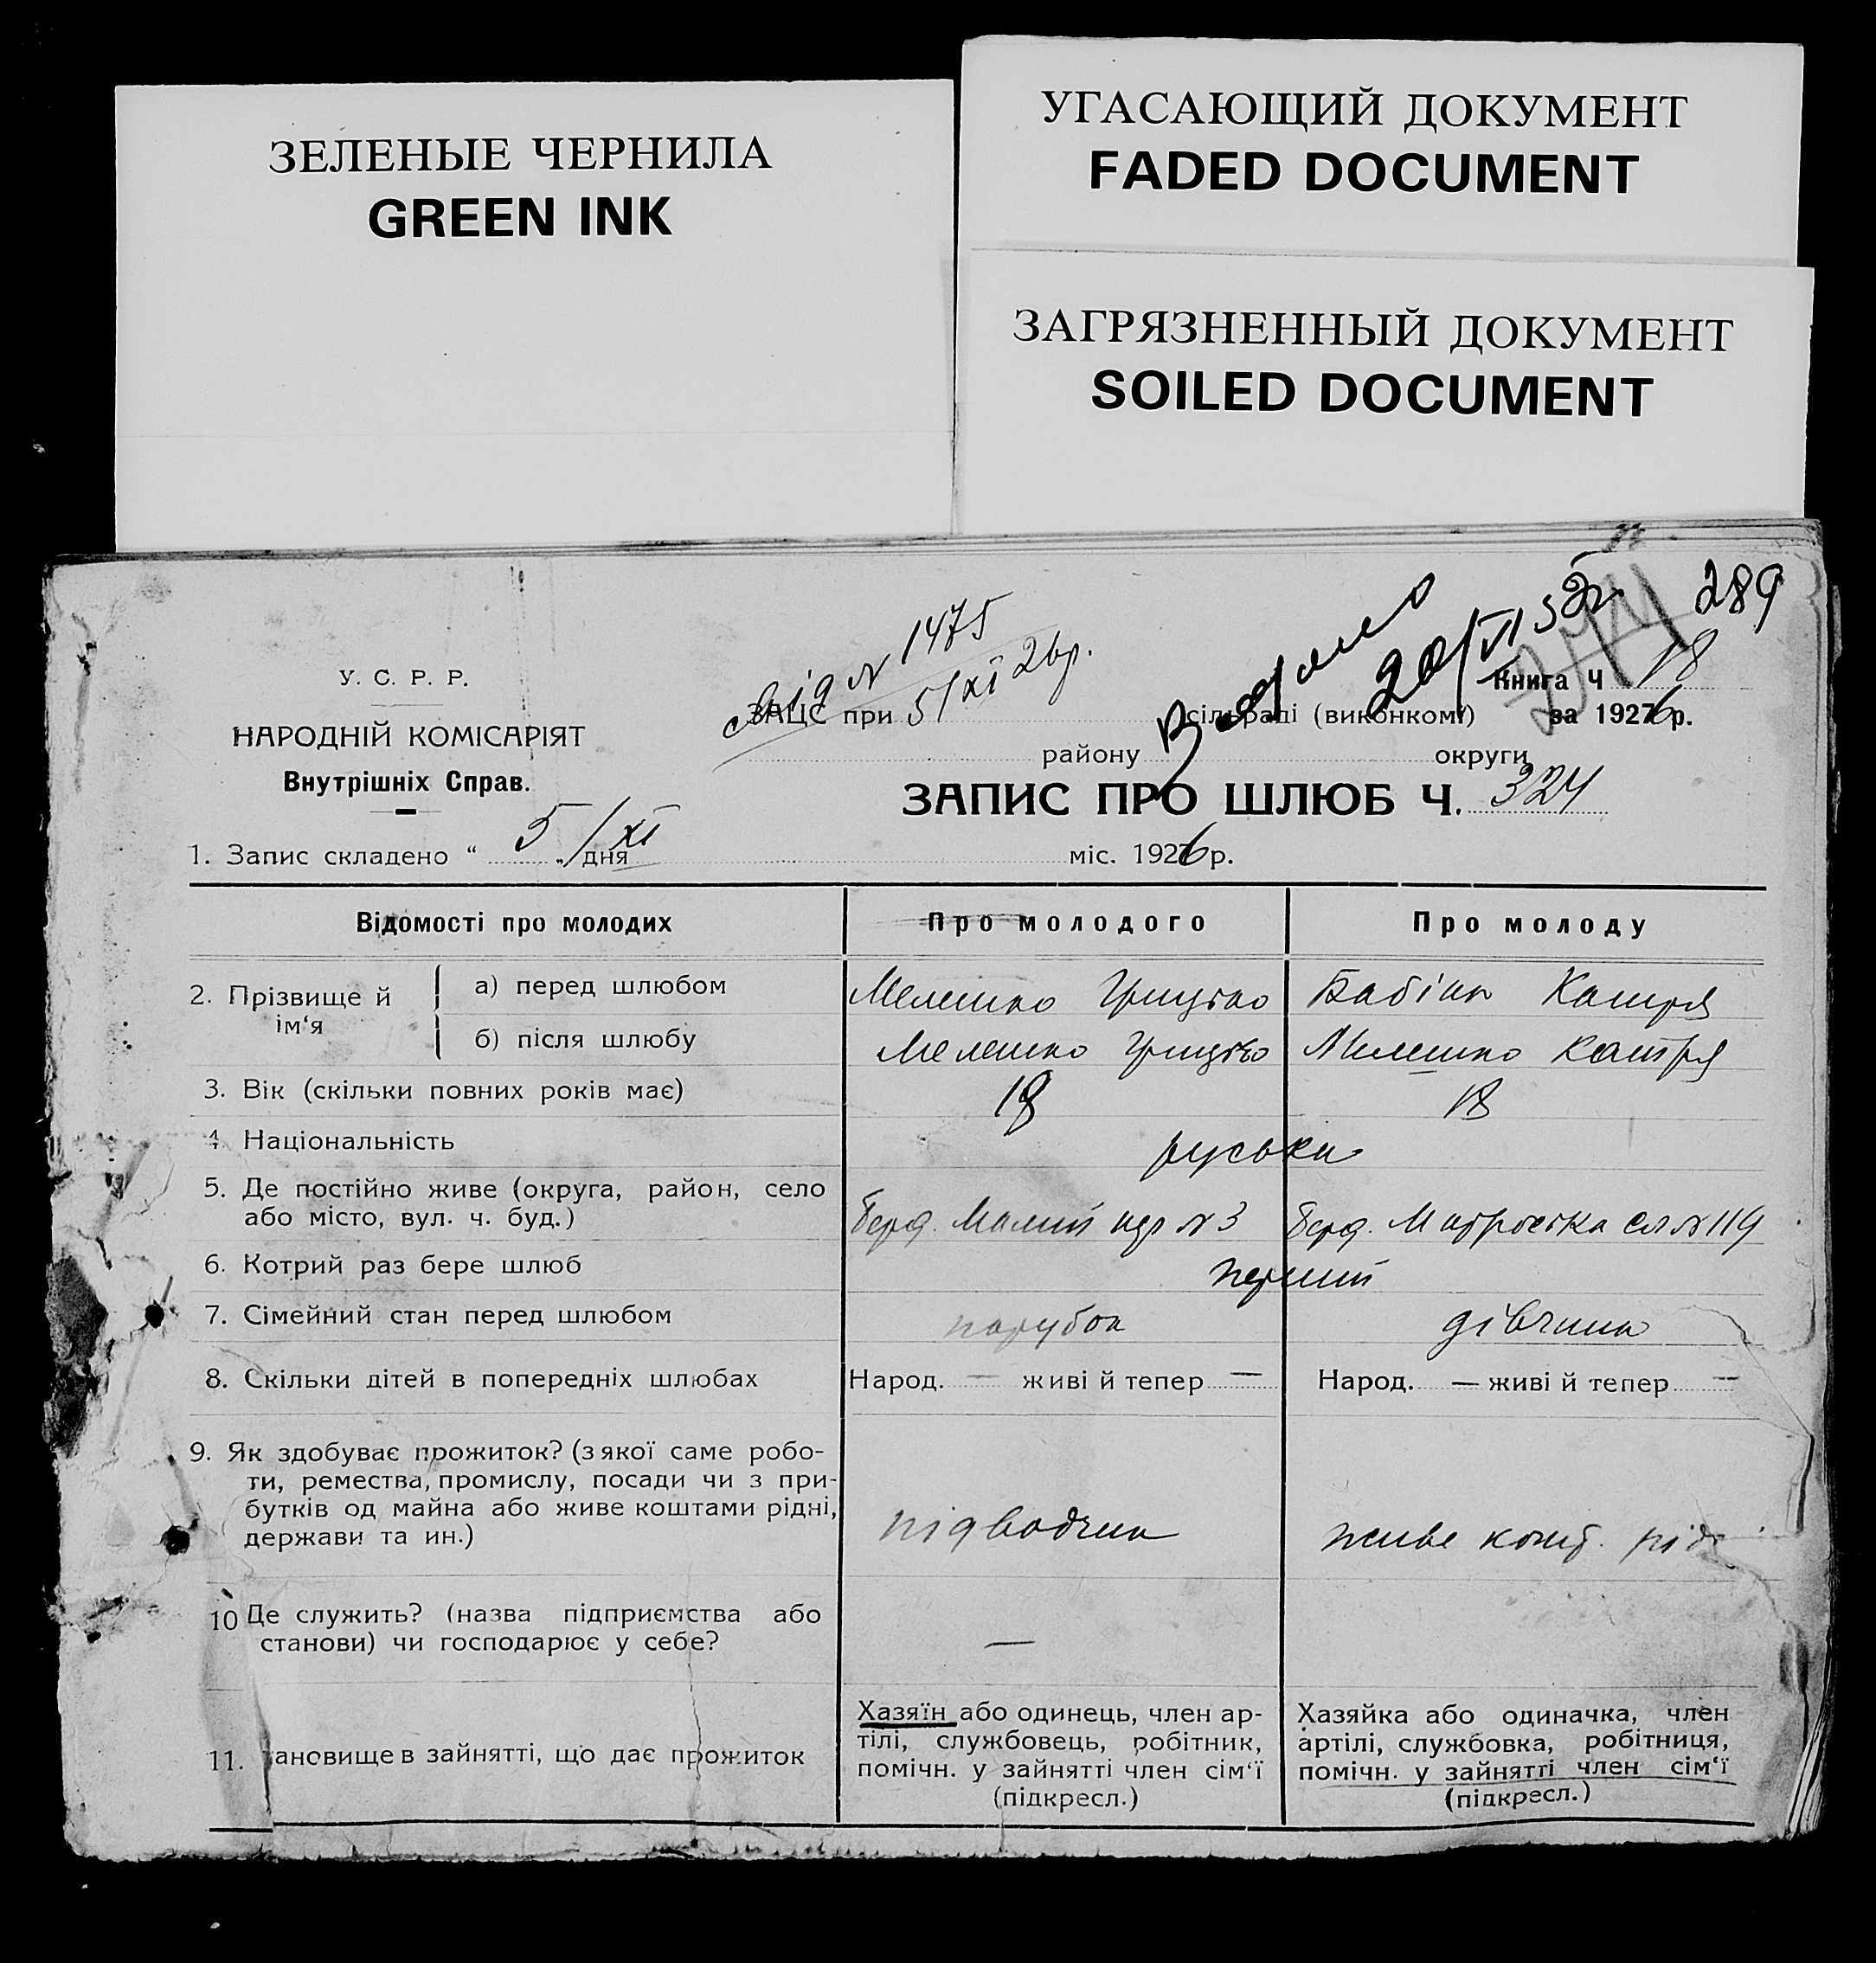 ЗЕЛЕНЫЕ ЧЕРНИЛА
GREEN INK
УГАСАЮЩИЙ ДОКУМЕНТ
FADED DOCUMENT
ЗАГРЯЗНЕННЫЙ ДОКУМЕНТ
SOILED DOCUMENT
289
№ 1475
5/XI 26р.
20/VI 52
У. С. Р. Р.
НАРОДНІЙ КОМІСАРІЯТ
Внутрішніх Справ.
Книга Ч 18
ЗАЦС при сільраді (виконкомі) за 1926 р.
району округи
ЗАПИС ПРО ШЛЮБ Ч. 324
1. Запис складено “ 5/XI „ дня міс. 1926 р.
Відомості про молодих Про молодого Про молоду
2. Прізвище й ім‘я
а) перед шлюбом Мелешко Грицько Бабіна Катря
б) після шлюбу Мелешко Грицько Мелешко Катря
3. Вік (скільки повних років має) 18 18
4. Національність руська
5. Де постійно живе (округа, район, село
або місто, вул. ч. буд.) Берд. Малий № 3 Берд. Матроська сл № 119
6. Котрий раз бере шлюб перший
7. Сімейний стан перед шлюбом парубок дівчина
8. Скільки дітей в попередніх шлюбах Народ. — живі й тепер — Народ. — живі й тепер —
9. Як здобуває прожиток? (з якої саме робо-
ти, ремества, промислу, посади чи з при-
бутків од майна або живе коштами рідні,
держави та ин.)
підводчик живе кошт. рід
10 Де служить? (назва підприємства або
станови) чи господарює у себе? —
11. тановище в зайнятті, що дає прожиток
Хазяїн або одинець, член ар-
тілі, службовець, робітник,
помічн. у зайнятті член сім‘ї
(підкресл.)
Хазяйка або одиначка, член
артілі, службовка, робітниця,
помічн. у зайнятті член сім‘ї
(підкресл.)